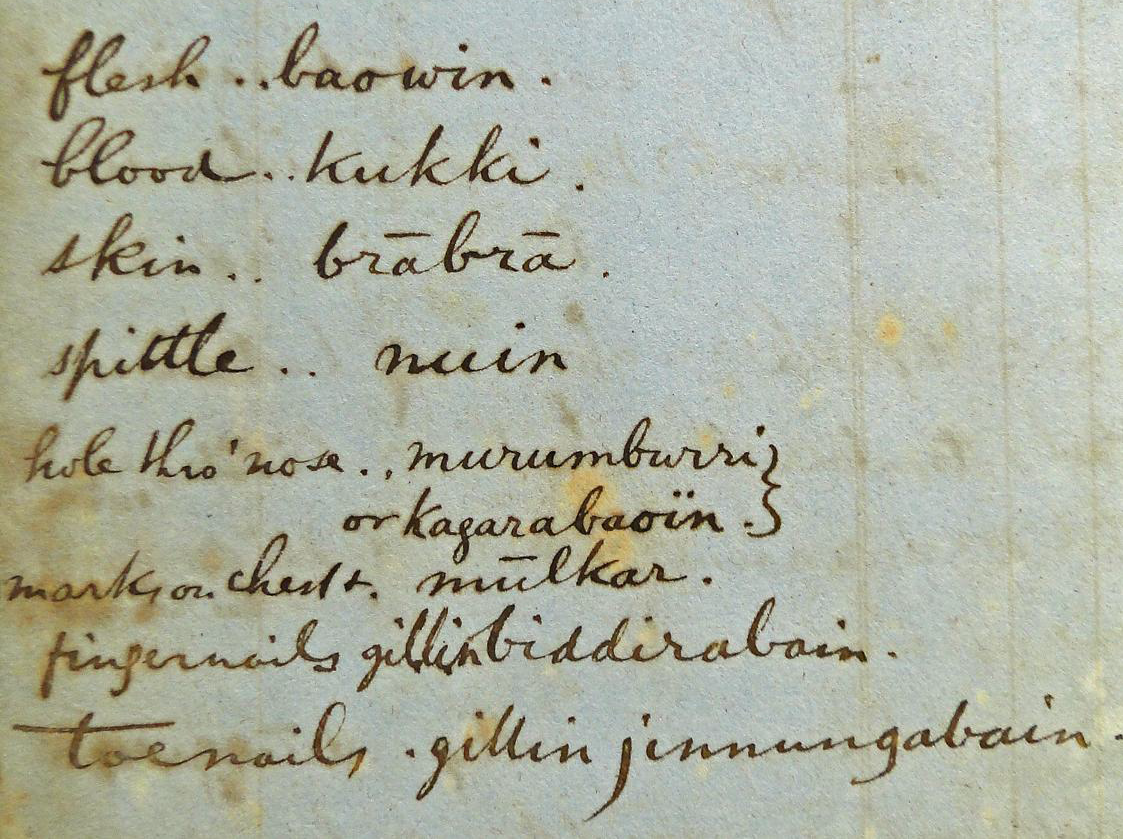 flesh .. baowin .
blood .. kukki .
skin .. brābrā .
spittle .. nuin
hole thro' nose .. murumburri }
or kagarabaoïn . }
marks on chest .. mūlkar .
fingernails gillin biddirabain .
toenails . gillin jinnungabain .